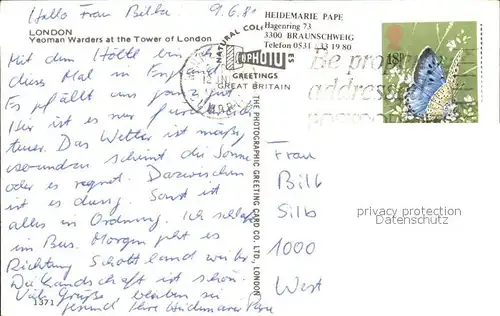 Hallo Frau Bilke. 9.6.81
LONDON
Yeoman Warders at the Tower of London
Mit dem Hölte bin ich
dieses Mal in England
Es gefällt uns ganz gut
Hier ist es nur
teuer. Das Wetter ist mäßig
scheint die Sonne
oder es regnet. Dazwischen
ist es dunstig. Sonst ist
alles in Ordnung. Ich schlafe
im Bus. Morgen geht es
Richtung Schottland weiter
Die Landschaft ist schön.
Viele Grüße bleiben sie
gesund Ihre Heidemarie Pape
1371
NATURAL COLOUR
PHOTO
GREETINGS
GREAT BRITAIN
THE PHOTOGRAPHIC GREETING CARD CO. LTD., LONDON
HEIDEMARIE PAPE
Hagenring 73
3300 BRAUNSCHWEIG
Telefon 0531 33 19 80
Be properly
addressed
postcode
18P
Frau
Bilk
Silb
1000
West
privacy protection
Datenschutz